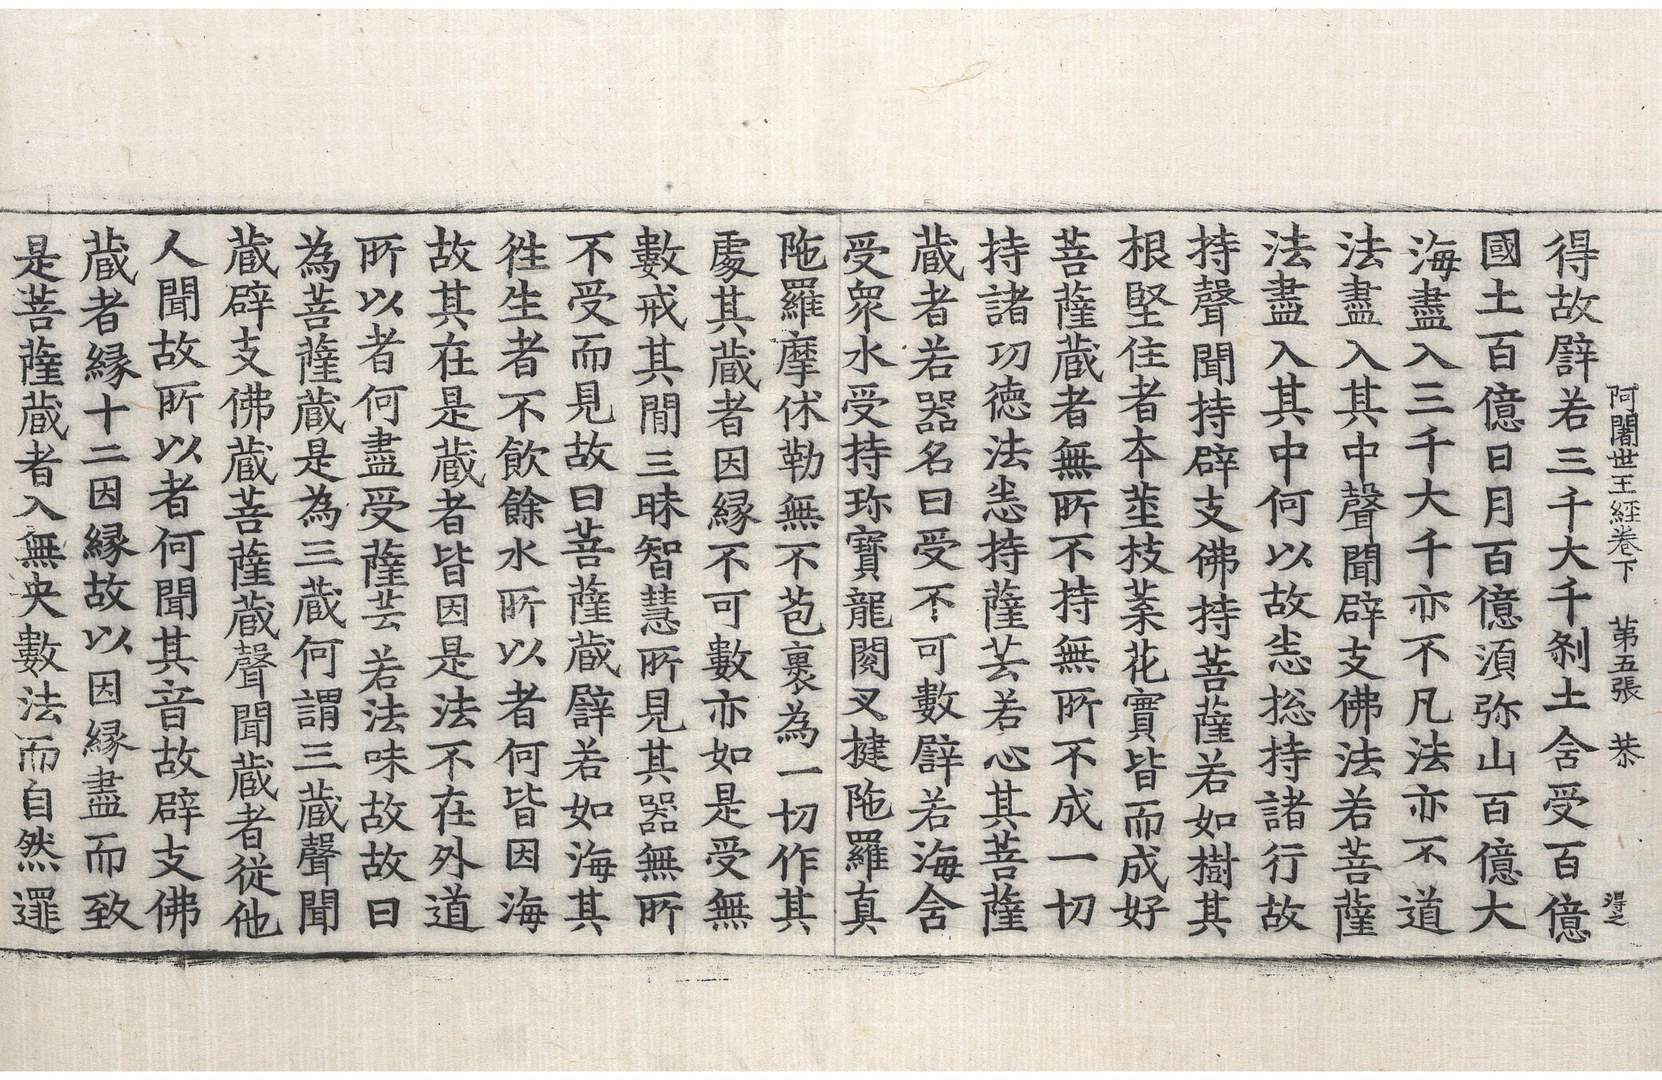 阿闍世王經卷下　第五張　恭
得之
得故譬若三千大千剎土含受百億
國土百億日月百億須弥山百億大
海盡入三千大千亦不凡法亦不道
法盡入其中聲聞辟支佛法若菩薩
法盡入其中何以故悉揔持諸行故
持聲聞持辟支佛持菩薩若如樹其
根堅住者夲莖枝葉花實皆而成好
菩薩藏者無所不持無所不成一切
持諸功德法悉持薩芸若心其菩薩
藏者若器名曰受不可數譬若海含
受衆水受持珎寶龍閱叉揵陁羅真
陁羅摩休勒無不苞裹為一切作其
處其藏者因縁不可數亦如是受無
數戒其閒三昧智慧所見其器無所
不受而見故曰菩薩藏譬若如海其
徃生者不飲餘水所以者何皆因海
故其在是藏者皆因是法不在外道
所以者何盡受薩芸若法味故故曰
為菩薩藏是為三藏何謂三藏聲聞
藏辟支佛藏菩薩藏聲聞藏者從他
人聞故所以者何聞其音故辟支佛
藏者縁十二因縁故以因縁盡而致
是菩薩藏者入無央數法而自然還